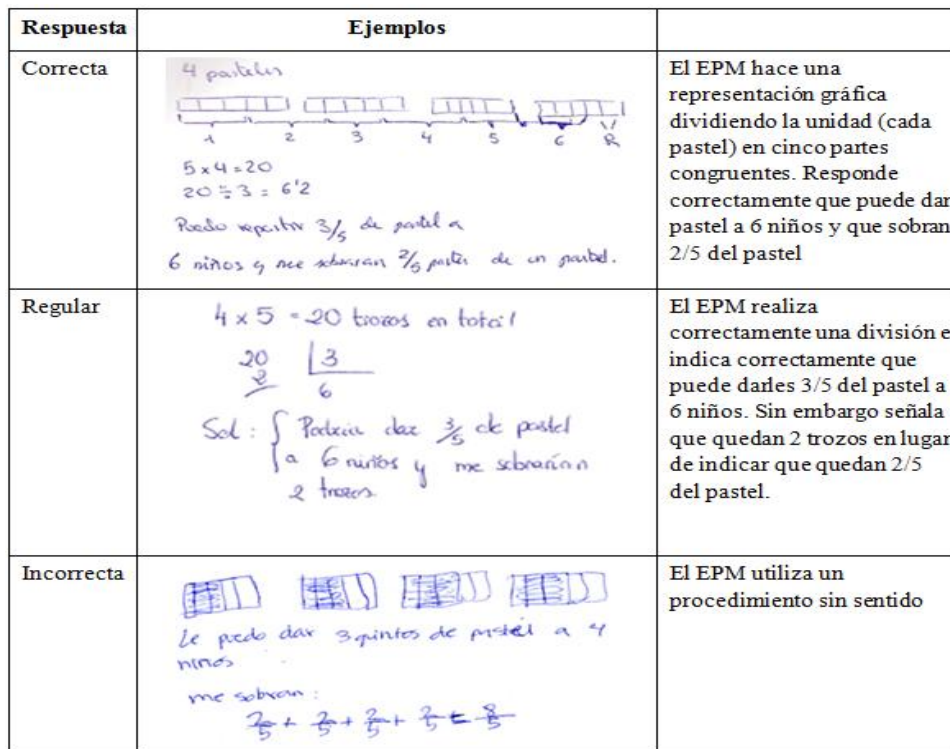 Respuesta
Ejemplos
Correcta
4 pasteles
1 2 3 4 5 6 R
5 x 4 = 20
20 ÷ 3 = 6'2
Puedo repartir 3/5 de pastel a
6 niños y me sobraran 2/5 partes de un pastel.
El EPM hace una
representación gráfica
dividiendo la unidad (cada
pastel) en cinco partes
congruentes. Responde
correctamente que puede dar
pastel a 6 niños y que sobran
2/5 del pastel
Regular
4 x 5 = 20 trozos en total
20 3
2 6
Sol: Podria dar 3/5 de pastel
a 6 niños y me sobrarían
2 trozos
El EPM realiza
correctamente una división e
indica correctamente que
puede darles 3/5 del pastel a
6 niños. Sin embargo señala
que quedan 2 trozos en lugar
de indicar que quedan 2/5
del pastel.
Incorrecta
Le puedo dar 3 quintos de pastel a 4
niños
me sobran:
2/5 + 2/5 + 2/5 + 2/5 = 8/5
El EPM utiliza un
procedimiento sin sentido